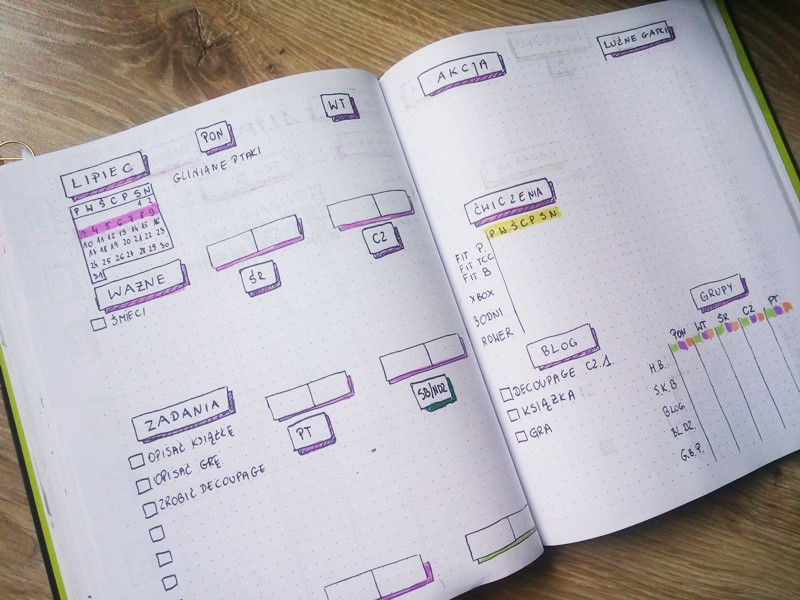 LIPIEC
P W Ś C P S N
1 2
3 4 5 6 7 8 9
10 11 12 13 14 15 16
17 18 19 20 21 22 23
24 25 26 27 28 29 30
31
WAŻNE
ŚMIECI
ZADANIA
OPISAĆ KSIĄŻKĘ
OPISAĆ GRĘ
ZROBIĆ DECOUPAGE
PON
GLINIANE PTAKI
WT
ŚR
CZ
PT
SB/NDZ
AKCJA
LUŹNE GATKI
ĆWICZENIA
P W Ś C P S N
FIT P.
FIT TCC
FIT B
XBOX
30DNI
ROWER
BLOG
DECOUPAGE CZ.1
KSIĄŻKA
GRA
GRUPY
PON WT ŚR CZ PT
H.B.
S.K.B
BLOG
BL.DZ.
G.B.P.